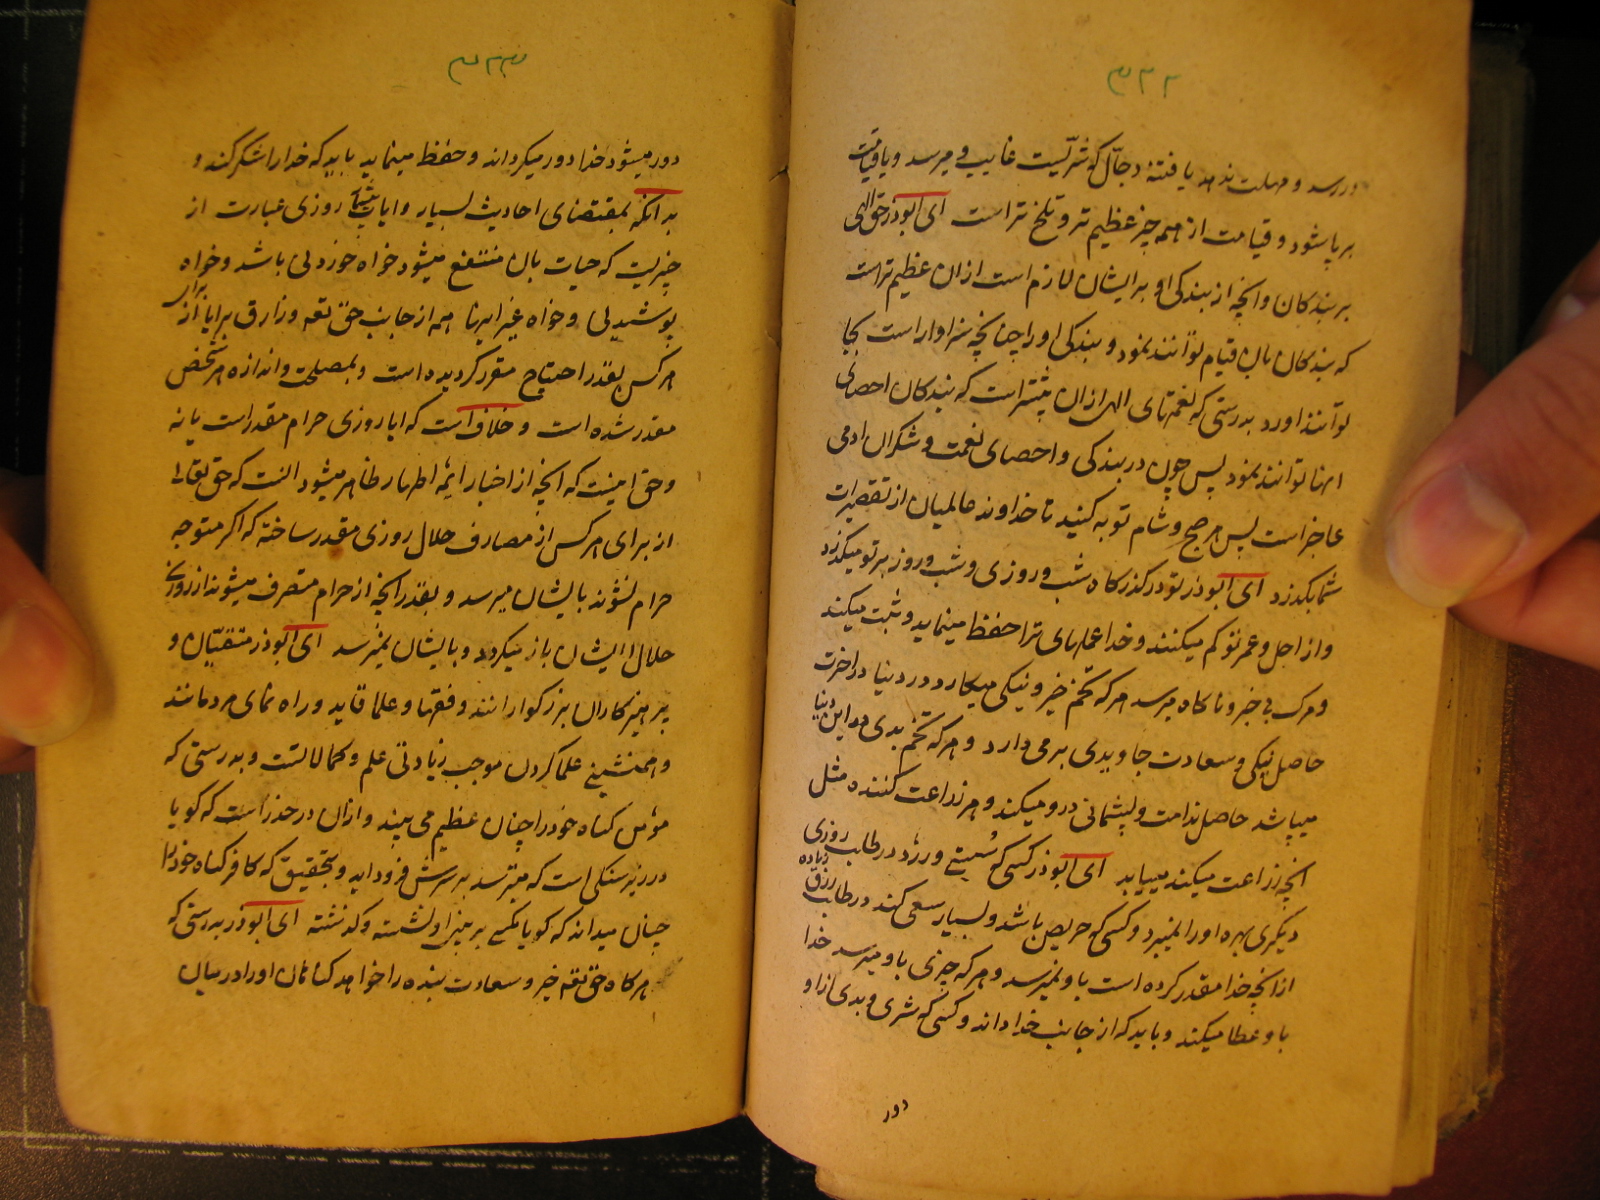 ۳۳۲
در رسد و مهلت ندهد یا فتنهٔ دجال که شرّیست غایب و میرسد و یا قیامت
برپا شود و قیامت از همه چیز عظیم تر و تلخ تر است ای ابوذر حق الهی
بر بندگان و آنچه از بندگی او بر ایشان لازم است ازان عظیم تر است
که بندگان بان قیام توانند نمود و بندگی او را چنانچه سزاوار است بجا
توانند اورد بدرستی که نعمتهای الهی ازان بیشتر است که بندگان احصای
انها توانند نمود پس چون در بندگی و احصای نعمت و شکران ادمی
عاجز است پس هر صبح و شام توبه کنید تا خداوند عالمیان از تقصیرات
شما بگذرد ای ابوذر تو در گذرگاه شب و روزی و شب و روز بر تو میگذرد
و از اجل و عمر تو کم میکنند و خدا عملهای ترا حفظ مینماید و ثبت میکند
و مرگ بی خبر و ناگاه میرسد هر که تخم خیر و نیکی میکارد در دنیا در اخرت
حاصل نیکی و سعادت جاویدی برمی دارد و هر که تخم بدی در این دنیا
میپاشد حاصل ندامت و پشیمانی درو میکند و هر زراعت کننده مثل
انچه زراعت میکند مییابد ای ابوذر کسی که سُستی ورزد در طلب روزی
دیگری بهره او را نمیبرد و کسی که حریص باشد و بسیار سعی کند در طلب رزق زیاده
از انچه خدا مقدر کرده است باو نمیرسد و هر که چیزی باو میرسد خدا
باو عطا میکند و باید که از جانب خدا داند و کسی که شری و بدی از او
دور
۳۳۳
دور میشود خدا دور میگرداند و حفظ مینماید باید که خدا را شکر کند و
بدانکه بمقتضای احادیث بسیار و ایات روزی عبارت از
چیزیست که حیات بان منتفع میشود خواه خوردنی باشد و خواه
پوشیدنی و خواه غیر اینها همه از جانب حق تعه و زارق برای
هر کس بقدر احتیاج مقرر گردیده است و بمصلحت و اندازه هر شخص
مقدر شده است و خلاف است که ایا روزی حرام مقدر است یا نه
و حق اینست که انچه از اخبار ایمه اطهار ظاهر میشود انست که حق تعالی
از برای هر کس از مصارف حلال روزی مقدر ساخته که اگر متوجه
حرام نشوند بایشان میرسد و بقدر انچه از حرام متصرف میشوند از روزی
حلال ایشان باز میگردد و بایشان نمیرسد ای ابوذر متقیان و
پرهیزکاران بزرگوارانند و فقها و علما قاید و راه نمای مردمانند
و همنشینی علما کردن موجب زیادتی علم و کمالاتست و بدرستی که
مؤمن گناه خود را چنان عظیم می بیند و ازان در حذر است که گویا
در زیر سنگی است که میترسد بر سرش فرود اید و بتحقیق که کافر گناه خود را
چنان میداند که گویا مگسی بر بینی او نشسته و گذشته ای ابوذر بدرستی که
هرگاه حق تعه خیر و سعادت بنده را خواهد گناهان او را در میان